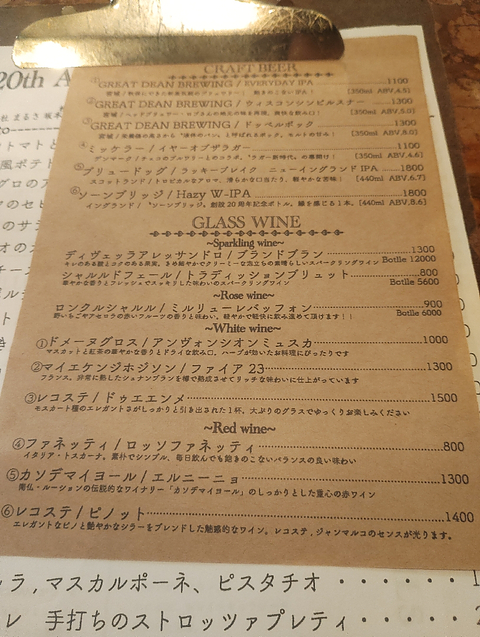 20th A
CRAFT BEER
①GREAT DEAN BREWING / EVERYDAY IPA 1100
[350ml ABV,4.5]
②GREAT DEAN BREWING / ウィスコンシンピルスナー 1300
[350ml ABV,5.0]
③GREAT DEAN BREWING / ドッペルボック 1300
[350ml ABV,8.0]
④ミッケラー / イヤーオブザラガー 1100
デンマーク / チェコのブルワリーとのコラボ。"ラガー新時代"の幕開け! [350ml ABV,4.6]
⑤ブリュードッグ / ラッキーブレイク ニューイングランド IPA 1800
スコットランド / トロピカルなアロマ、滑らかな口当たり、軽やかな苦味! [440ml ABV,6.7]
⑥ソーンブリッジ / Hazy W-IPA 1800
イングランド / 「ソーンブリッジ」創設 20 周年記念ボトル。縁を感じる 1 本。 [440ml ABV,8.6]
GLASS WINE
~Sparkling wine~
ディヴェッラアレッサンドロ / ブランドブラン 1300
Botlle 12000
シャルルドフェール / トラディッションブリュット 800
華やかな香りとフレッシュでスッキリした味わいのスパークリングワイン Botlle 5600
~Rose wine~
ロンクルシャルル / ミルリューレバッフォン 900
軽やかで軽快に飲み進めて頂けます!! Botlle 6000
~White wine~
①ドメーヌグロス / アンヴォンシオンミュスカ 1000
マスカットと紅茶の華やかな香りとドライな飲み口。ハーブが効いたお料理にぴったりです
②マイエケンジホジソン / ファイア 23 1300
フランス。非常に熟したシュナンブランを樽で熟成させてリッチな味わいに仕上がっています
③レコステ / ドゥエエンメ 1500
モスカート種のエレガントさがしっかりと引き出された 1 杯。大ぶりのグラスでゆっくりお楽しみください
~Red wine~
④ファネッティ / ロッソファネッティ 800
イタリア・トスカーナ。素朴でシンプル、毎日飲んでも飽きのこないバランスの良い味わい
⑤カソデマイヨール / エルニーニョ 1300
南仏・ルーションの伝説的なワイナリー「カソデマイヨール」のしっかりとした重心の赤ワイン
⑥レコステ / ピノット 1400
エレガントなピノと艶やかなシラーをブレンドした魅惑的なワイン。レコステ , ジャンマルコのセンスが光ります。
ラ , マスカルポーネ、ピスタチオ ・・・・・・
レ 手打ちのストロッツァプレティ ・・・・・